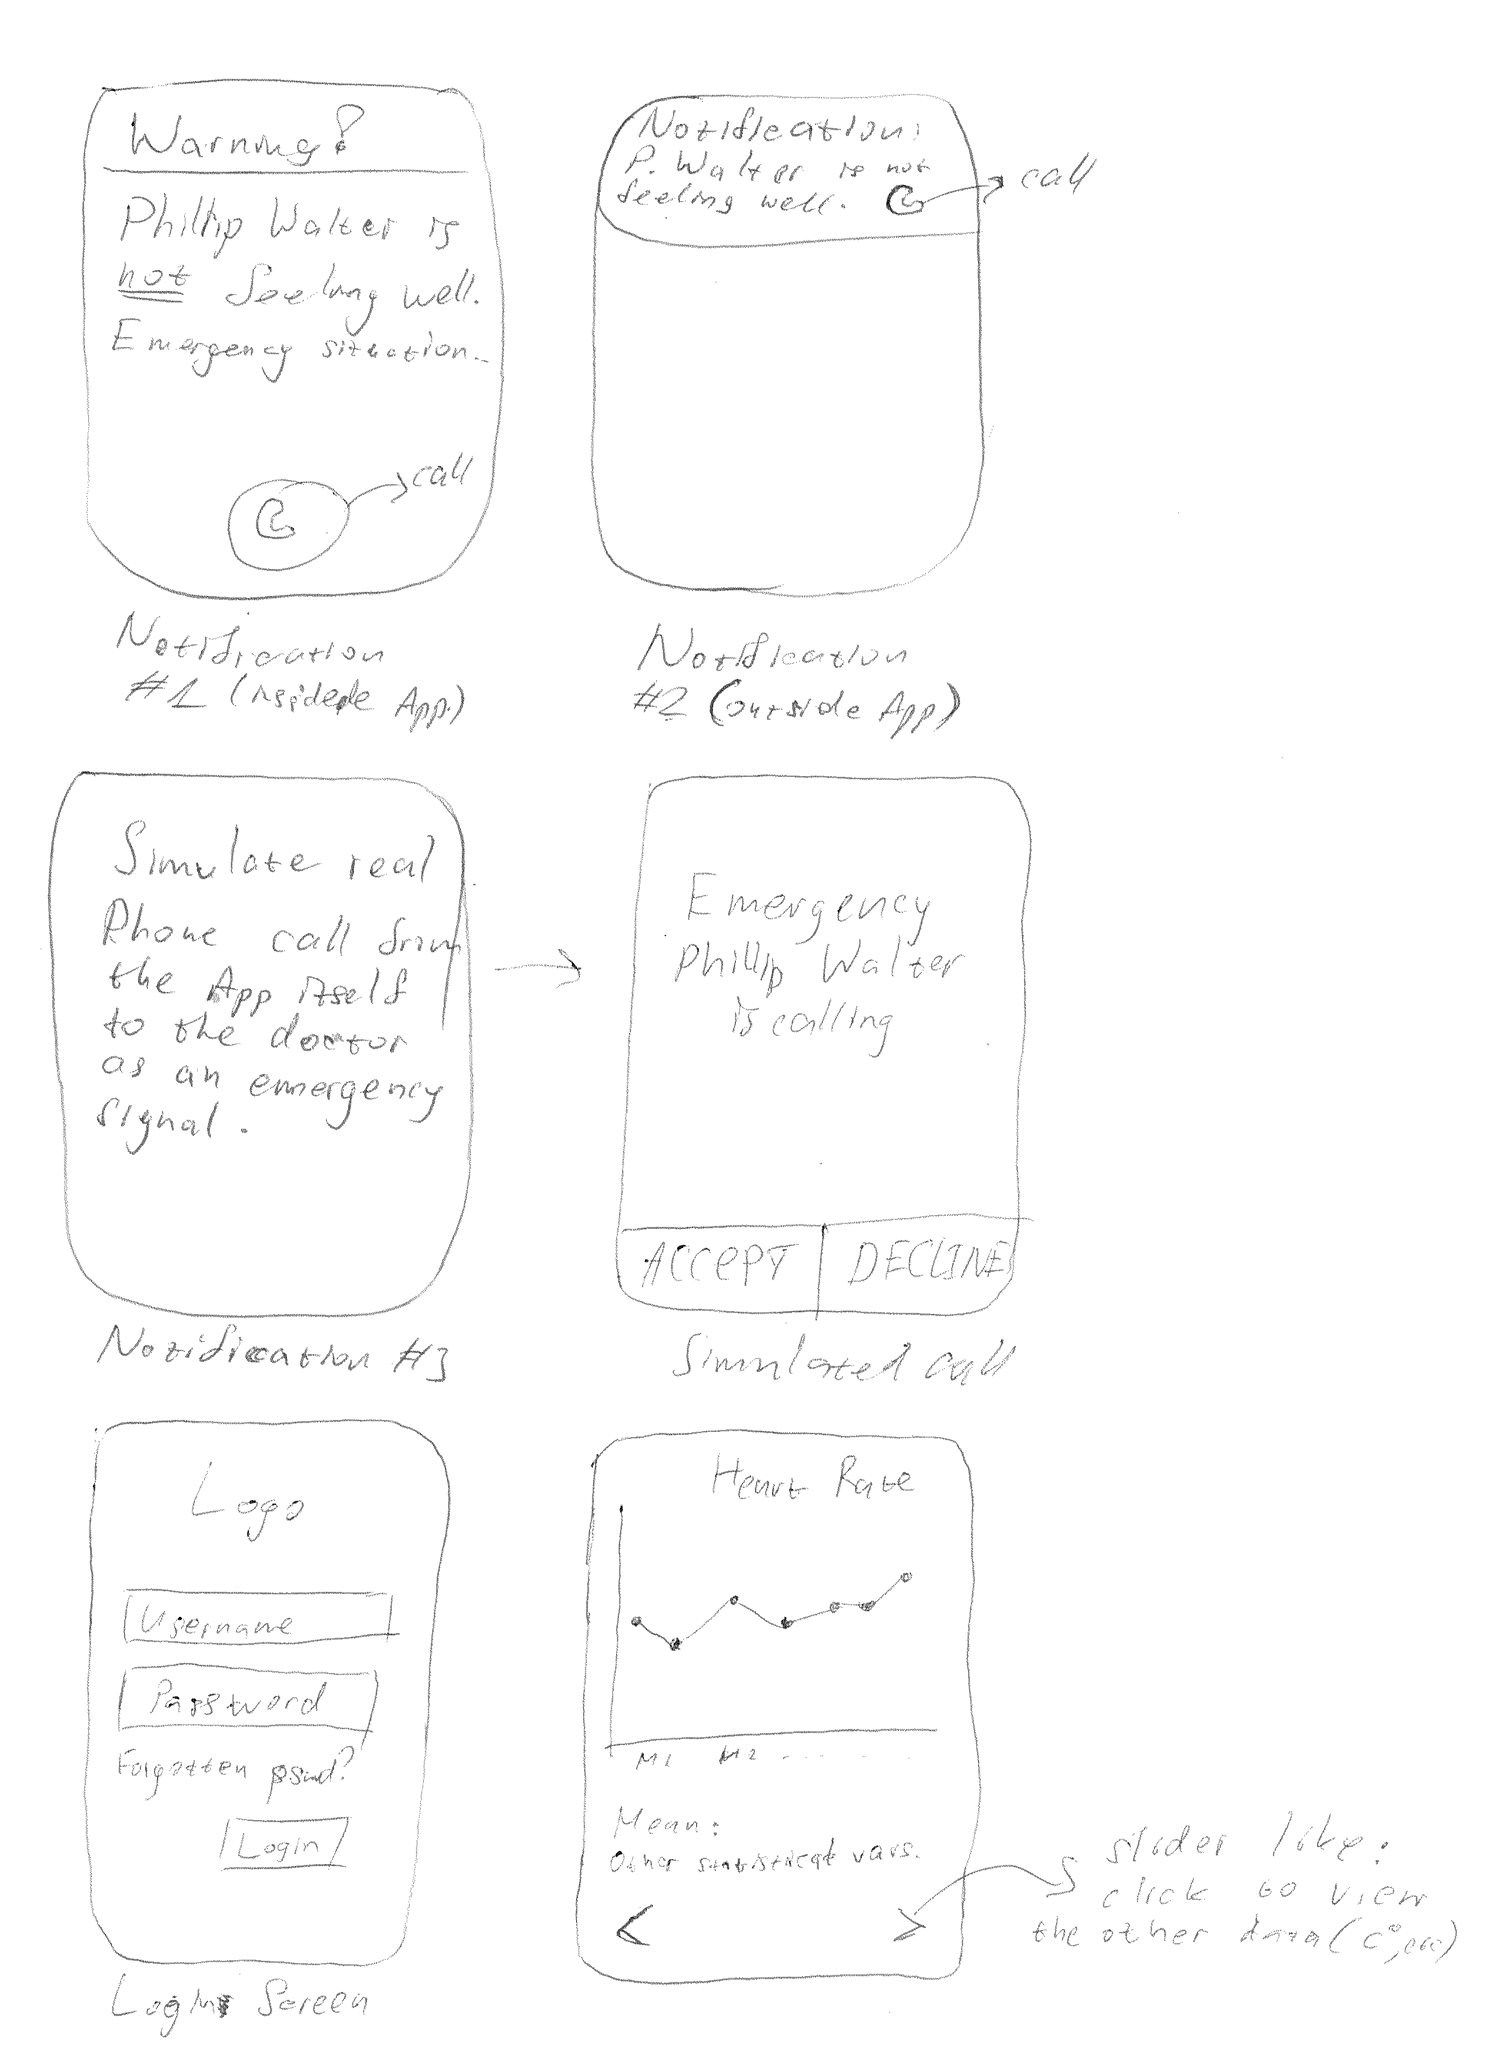 Warning!
Phillip Walter is
not feeling well.
Emergency situation.
call
Notification
#1 (inside App.)
Notification:
P. Walter is not
feeling well.
call
Notification
#2 (outside App)
Simulate real
Phone call from
the App itself
to the doctor
as an emergency
signal.
Notification #3
Emergency
Phillip Walter
is calling
ACCEPT
DECLINE
Simulated call
Logo
Username
Password
Forgotten pswd?
Login
Login Screen
Heart Rate
M1 M2 . . . . . .
Mean:
Other statistical vars.
< >
slider like:
click to view
the other data (C°, etc)